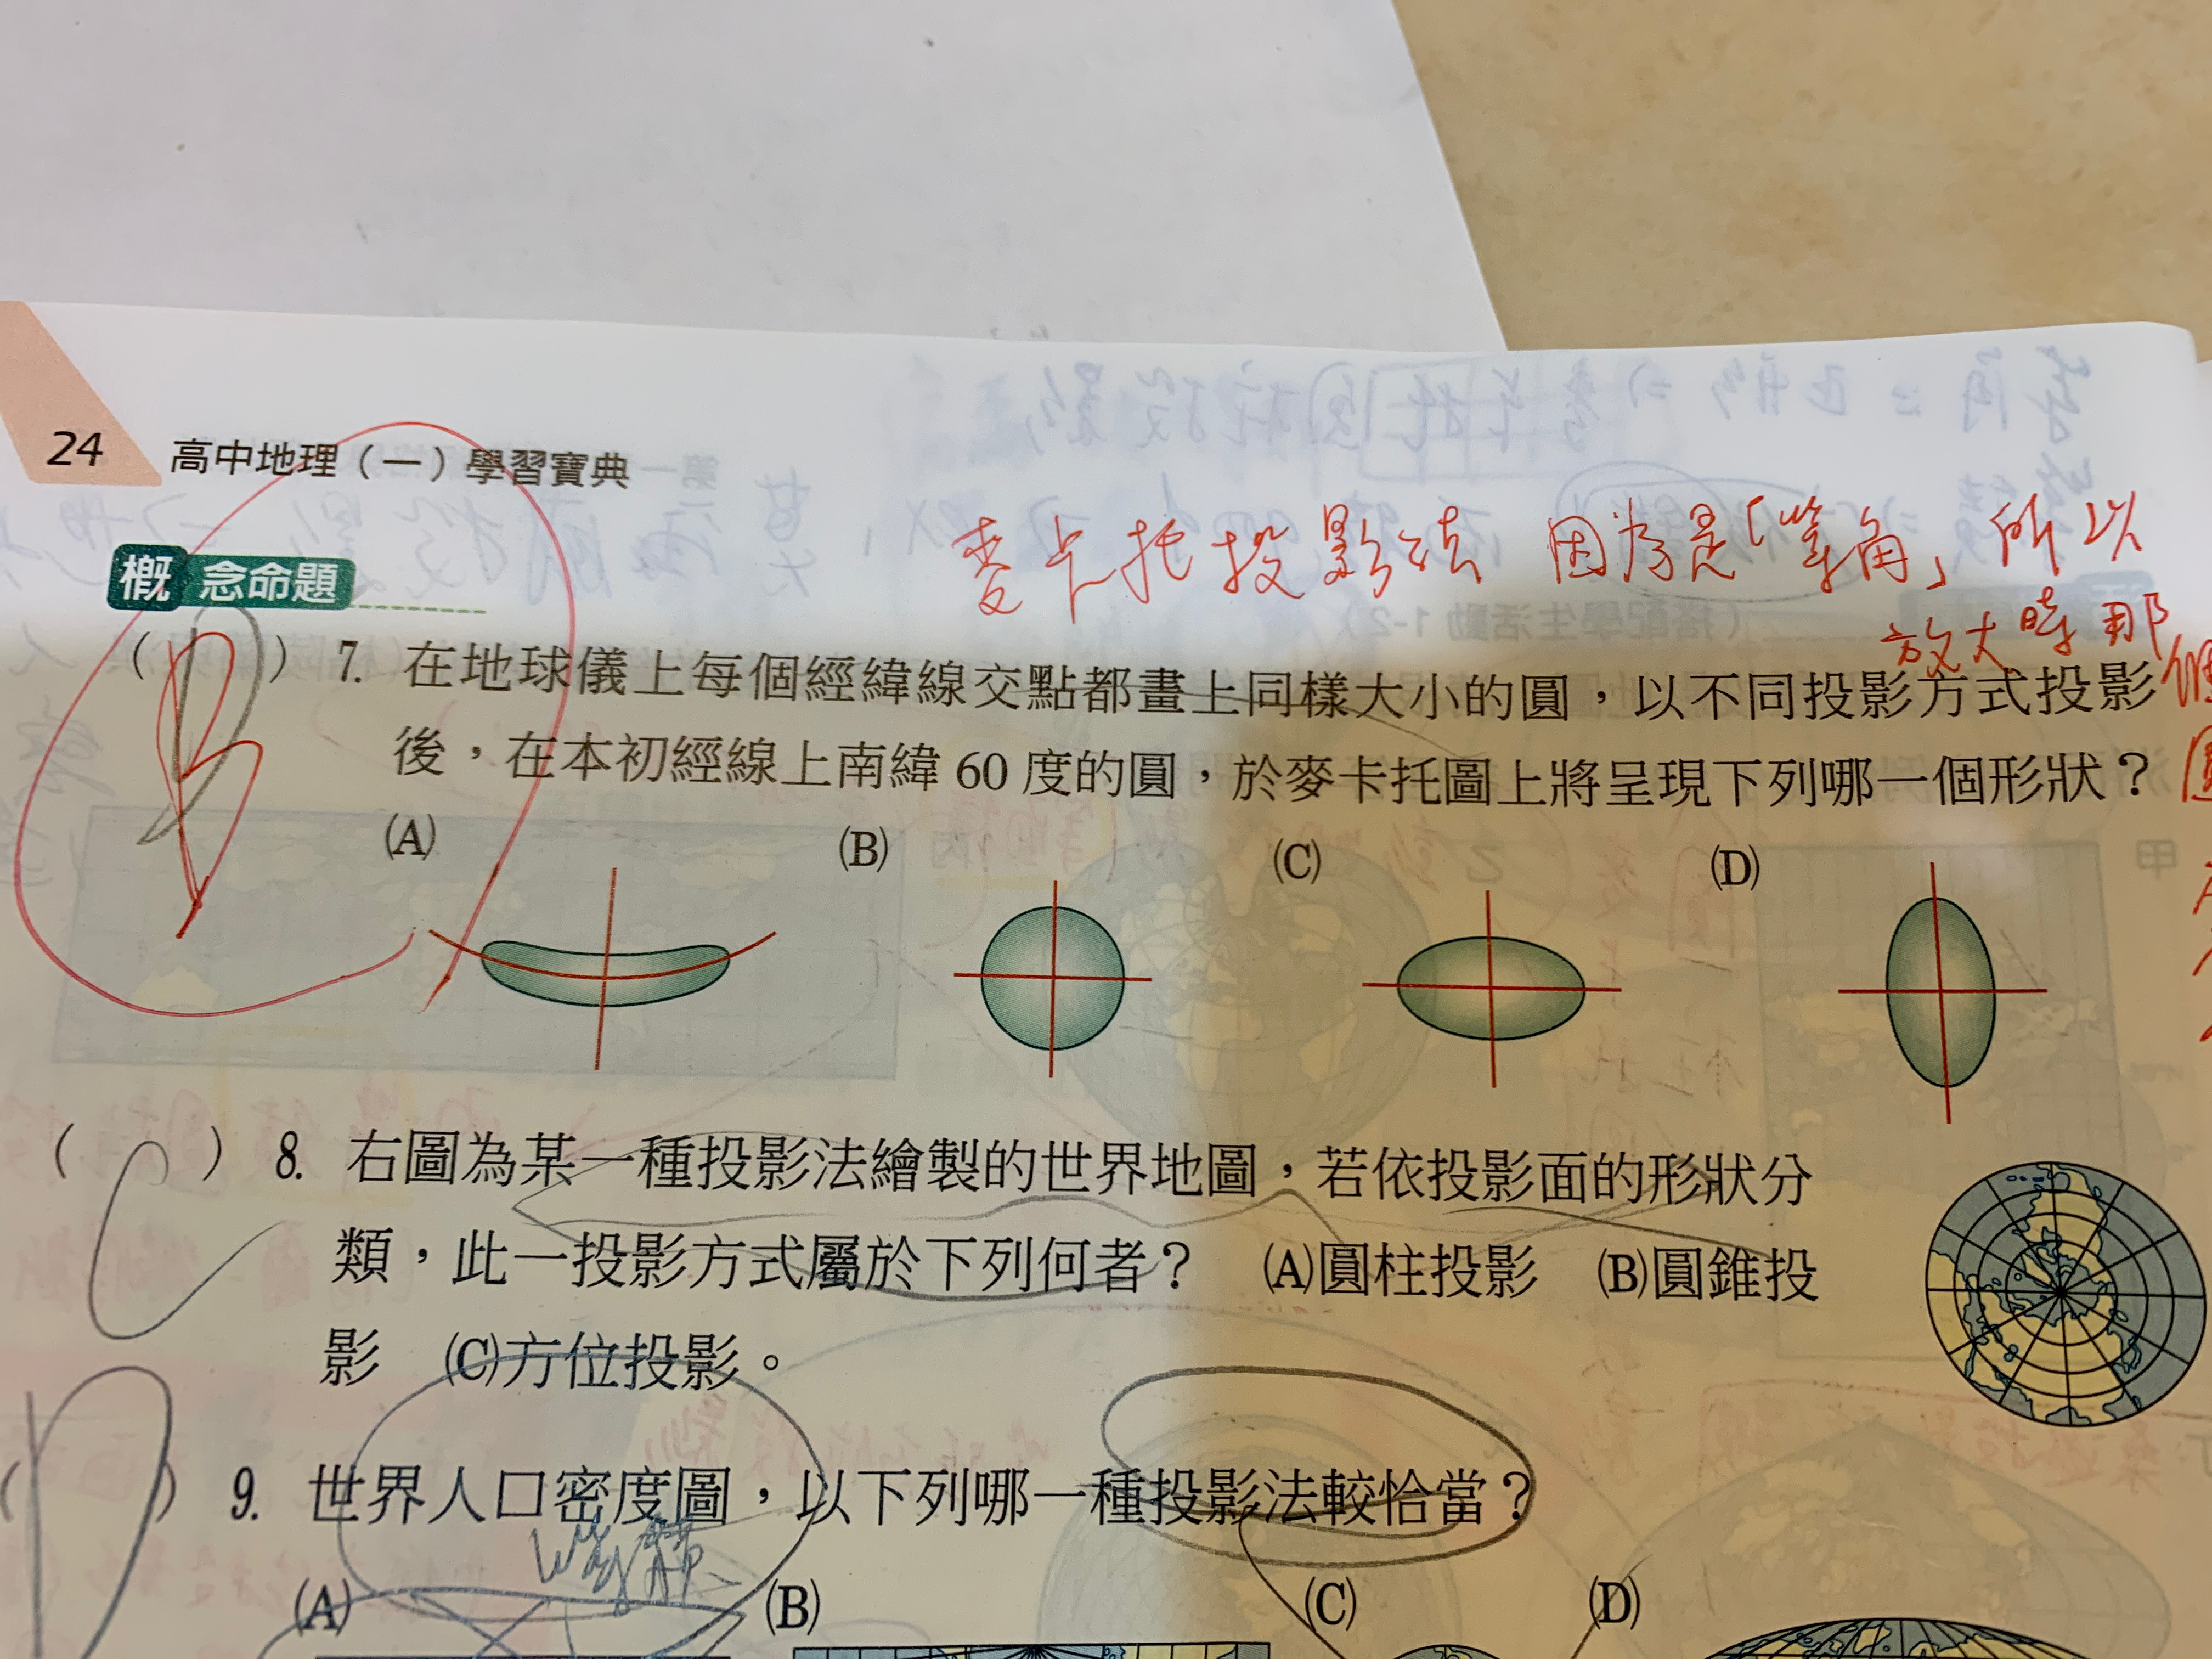 24 高中地理（一）學習寶典
麥卡托投影法 因為是「等角」所以
放大時那個
圓
概念命題
( B ) 7. 在地球儀上每個經緯線交點都畫上同樣大小的圓，以不同投影方式投影
後，在本初經線上南緯 60 度的圓，於麥卡托圖上將呈現下列哪一個形狀？
(A) (B) (C) (D)
( C ) 8. 右圖為某一種投影法繪製的世界地圖，若依投影面的形狀分
類，此一投影方式屬於下列何者？ (A)圓柱投影 (B)圓錐投
影 (C)方位投影。
( D ) 9. 世界人口密度圖，以下列哪一種投影法較恰當？
(A) (B) (C) (D)